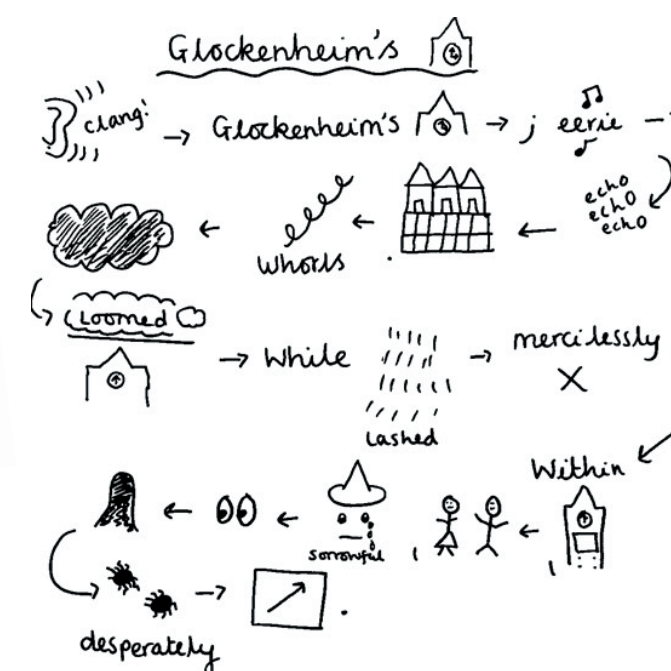 Glockenheim's
clang! Glockenheim's ; eerie
echo
echo
echo
whorls .
Loomed
While mercilessly
lashed
Within
sorrowful , ,
desperately .